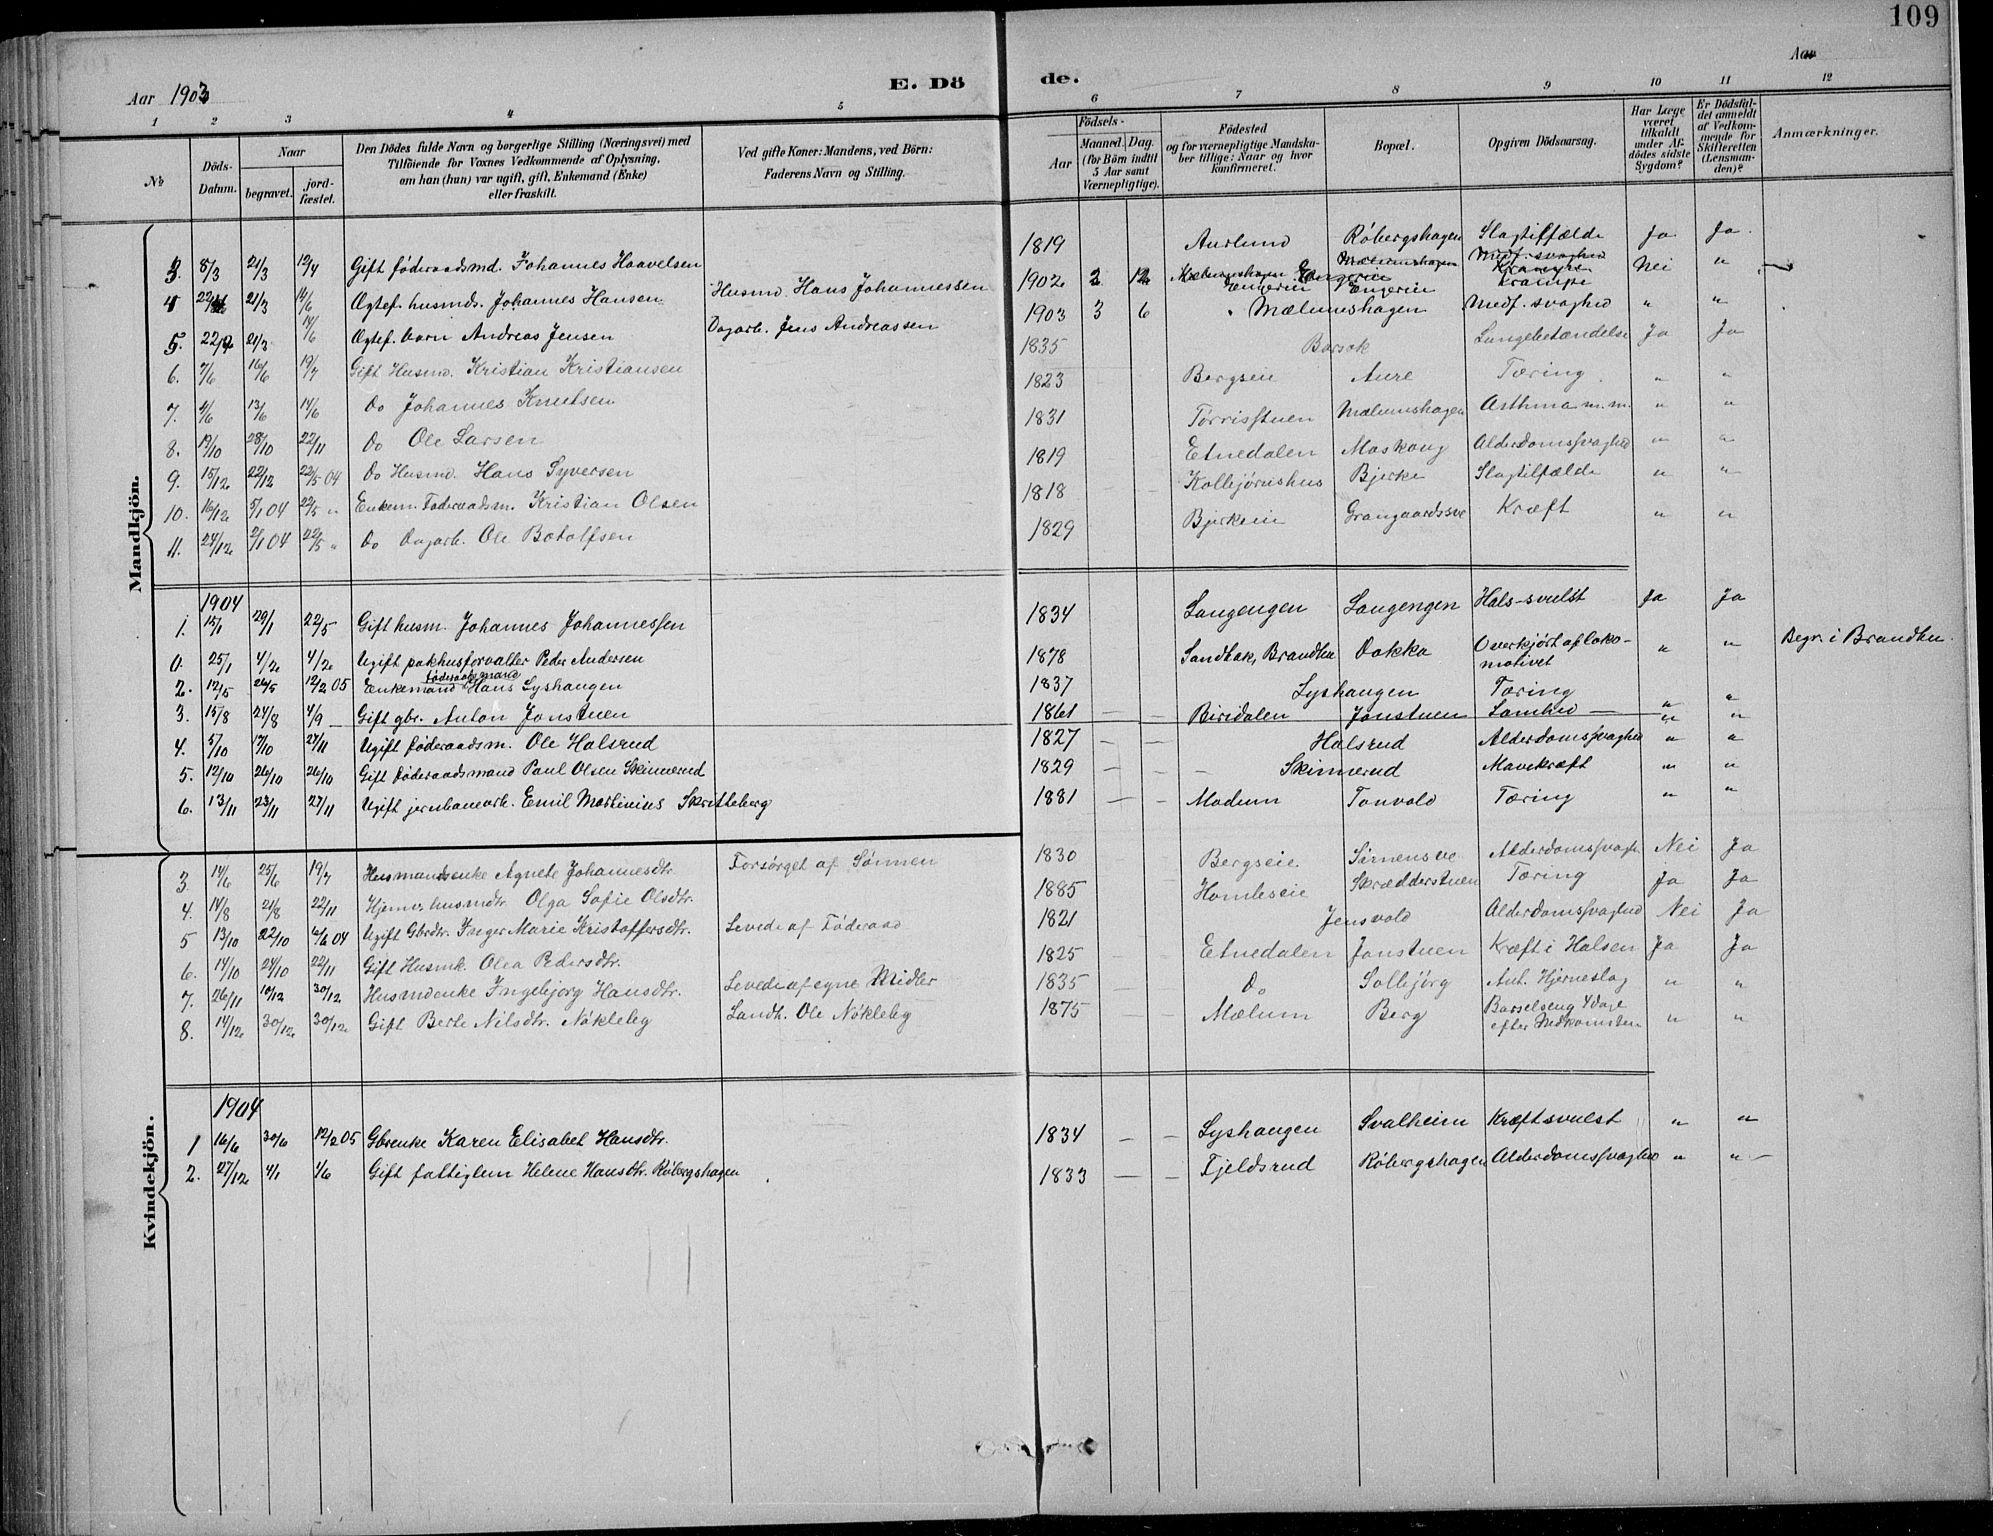 109
Aar 1903 E. Dö de. Aar
1 2 3 4 5 6 7 8 9 10 11 12
№ Döds-Datum. Naar begravet. jord-fæstet. Den Dödes fulde Navn og borgerlige Stilling (Næringsvei) med Tilföiende for Voxnes Vedkommende af Oplysning, om han (hun) var ugift, gift, Enkemand (Enke) eller fraskilt. Ved gifte Koner: Mandens, ved Börn: Faderens Navn og Stilling. Födsels- Aar Maaned. Dag. (for Börn indtil 5 Aar samt Værnepligtige). Födested og for værnepligtige Mandskaber tillige: Naar og hvor konfirmeret. Bopæl. Opgiven Dödsaarsag. Har Læge været tilkaldt under Afdödes sidste Sygdom? Er Dödsfaldet anmeldt af Vedkommende for Skifteretten (Lensmanden)? Anmærkninger.
Mandkjön.
3. 8/3 21/3 12/4 Gift føderaadsmd. Johannes Haavelsen 1819 Aurlund Røbergshagen Slagtilfælde Ja Ja
4 21/3 14/6 Ægtef. husmds. Johannes Hansen Husmd. Hans Johannessen 1902 2 12 Engerin Engerin Krampe Nei "
5. 21/3 14/6 Ægtef. barn Andreas Jensen Dagarb. Jens Andreassen 1903 3 6 Mælumshagen Medf. svaghed " "
6. 7/6 16/6 19/7 Gift Husmd. Kristian Kristiansen 1835 Barsok Lungebetændelse Ja Ja
7. 4/6 13/6 14/6 Do Johannes Knutsen 1823 Bergseie Aure Tæring " "
8. 19/10 28/10 22/11 Do Ole Larsen 1831 Tørrisstuen Mælumshagen Asthma m.m. " "
9. 15/12 22/12 22/5 04 Do Husmd. Hans Syversen 1819 Etnedalen Maskoug Alderdomssvaghed " "
10. 16/12 5/1 04 22/5 " Enkem. Føderaadsm. Kristian Olsen 1818 Kollejørnshus Bjerke Slagtilfælde " "
11. 24/12 2/1 04 22/5 " Do Dagarb. Ole Botolfsen 1829 Bjerkeie Grangaardsve Kræft " "
1904
1. 15/1 29/1 22/5 Gift husm. Johannes Johannessen 1834 Langengen Langengen Hals-svulst Ja Ja
0. 25/1 4/2 4/2 Ugift pakhusforvalter Peder Andersen 1878 Sandbak, Brandbu Dokka Overkjørt af lokomotivet " " Begr. i Brandbu.
2. 12/5 26/5 12/2 05 Enkemand føderaadsmand Hans Lyshaugen 1837 Lyshaugen Tæring " "
3. 15/8 24/8 4/9 Gift gbr. Anton Jonstuen 1861 — — Biridalen Jonstuen Lamhed — " "
4. 5/10 17/10 27/11 Ugift føderaadsm. Ole Halsrud 1827 — — Halsrud Alderdomssvaghed " "
5. 12/10 26/10 26/10 Gift føderaadsmand Paul Olsen Skinnerud 1829 — — — Skinnerud Mavekræft " "
6. 13/11 23/11 27/11 Ugift jernbanearb. Emil Martinius Skritteberg 1881 — — Modum Tonvold Tæring " "
Kvindekjön.
3. 14/6 25/6 19/7 Husmandsenke Agnete Johannesdtr. Forsørget af Sønnen 1830 Bergseie Alderdomssvagh. Nei Ja
4. 14/8 21/8 22/11 Hjemv. husmdtr. Olga Sofie Olsdtr. 1885 Homleseie Skrædderstuen Tæring Ja Ja
5 13/10 22/10 04 Ugift Gbrdtr. Inger Marie Kristoffersdtr. Levede af Føderaad 1821 Jensvold Alderdomssvaghed Nei Ja
6. 14/10 24/10 22/11 Gift Husmk. Olea Pedersdtr. 1825 Etnedalen Jonstuen Kræft i Halsen Ja Ja
7. 26/11 10/12 30/12 Husmdenke Ingebjørg Hansdtr. Levede af egne Midler 1835 Do Solbjørg Ant. Hjerneslag " "
8. 14/12 30/12 30/12 Gift Berte Nilsdtr. Nøkleby Landh. Ole Nøkleby 1875 Mælum Berg Barselseng 4 dage efter Nedkomsten " "
1904
1 16/6 30/6 12/2 05 Gbrenke Karen Elisabet Hansdtr. 1834 — — Lyshaugen Svalheim Kræftsvulst " "
2. 27/12 4/1 1/6 Gift fattiglem Helene Hansdtr. Røbergshagen 1833 — — Fjeldsrud Røbergshagen Alderdomssvaghed " "